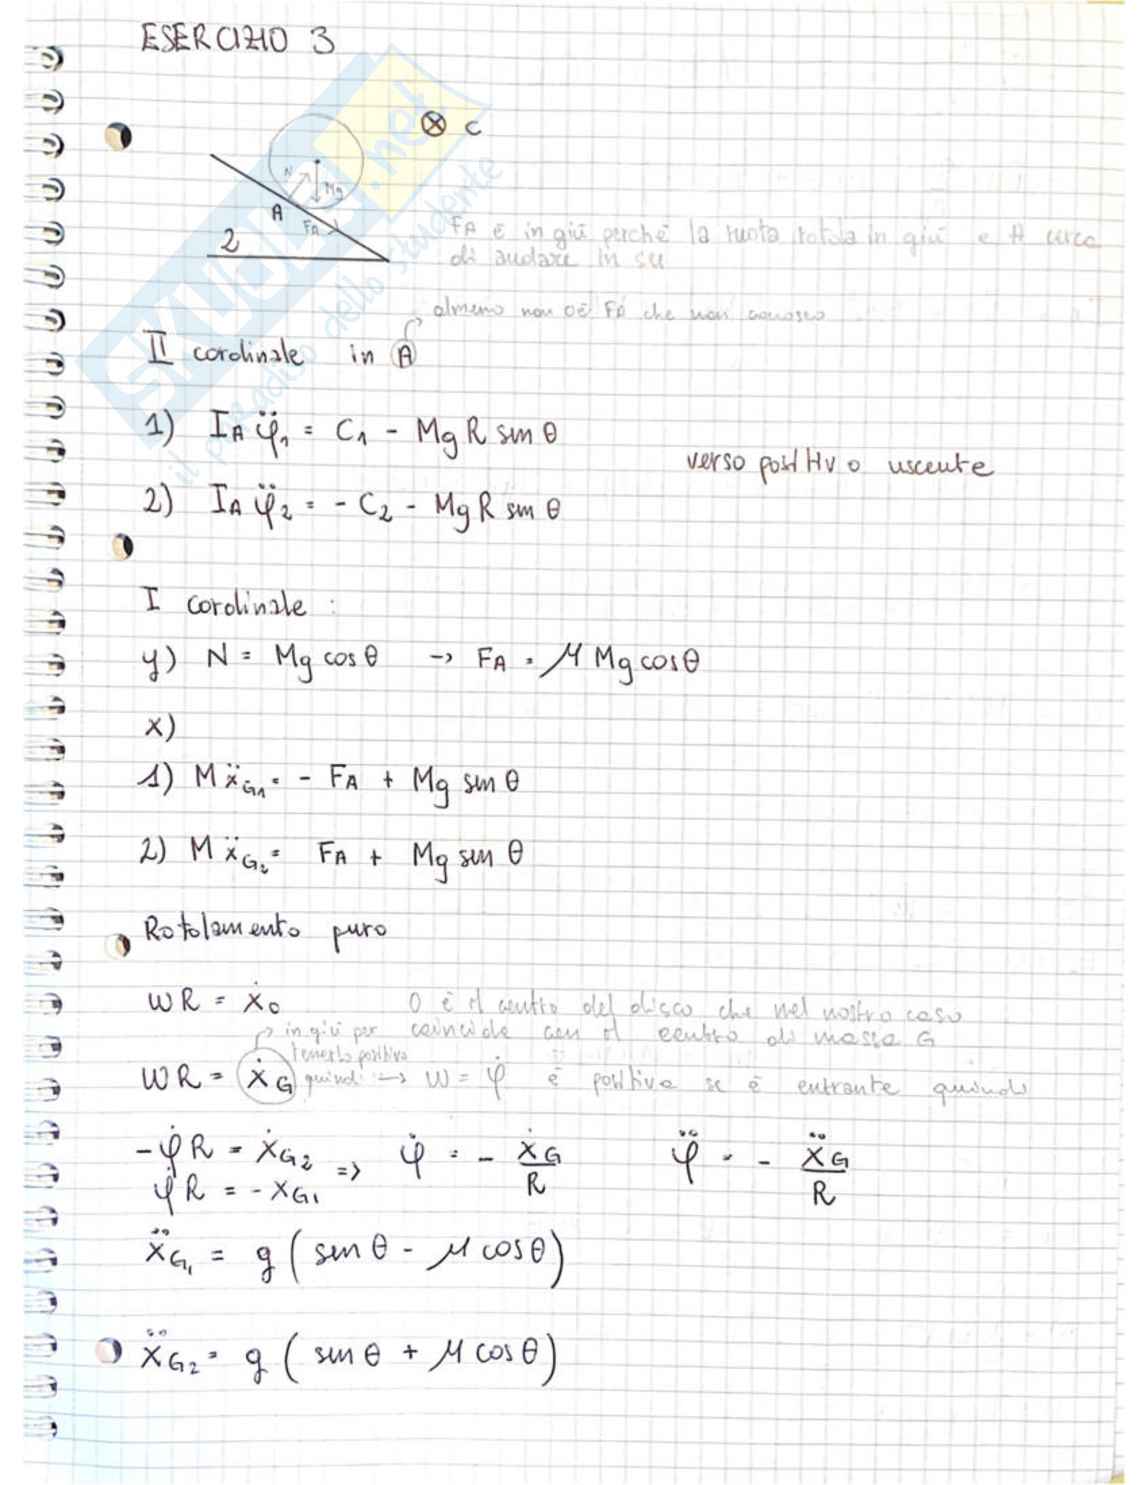 ESERCIZIO 3
⊗ C
N
Mg
A
FA
2
FA è in giù perché la ruota rotola in giù e A cerca
di andare in su
almeno non c'è FA che non conosco
II cardinale in A
1) IA φ̈1 = C1 - Mg R sin θ
verso positivo uscente
2) IA φ̈2 = - C2 - Mg R sin θ
I cardinale :
y) N = Mg cos θ → FA = μ Mg cos θ
x)
1) M ẍG1 = - FA + Mg sin θ
2) M ẍG2 = FA + Mg sin θ
Rotolamento puro
WR = ẋo O è il centro del disco che nel nostro caso
coincide con il centro di massa G
in giù per
tenerlo positivo
WR = ẋG quindi → W = φ̇ è positiva se è entrante quindi
-φ̇ R = ẋG2 => φ̇ = - ẋG/R φ̈ = - ẍG/R
φ̇ R = - xG1
ẍG1 = g ( sin θ - μ cos θ )
ẍG2 = g ( sin θ + μ cos θ )
SKUOLA.net
il paradiso dello studente